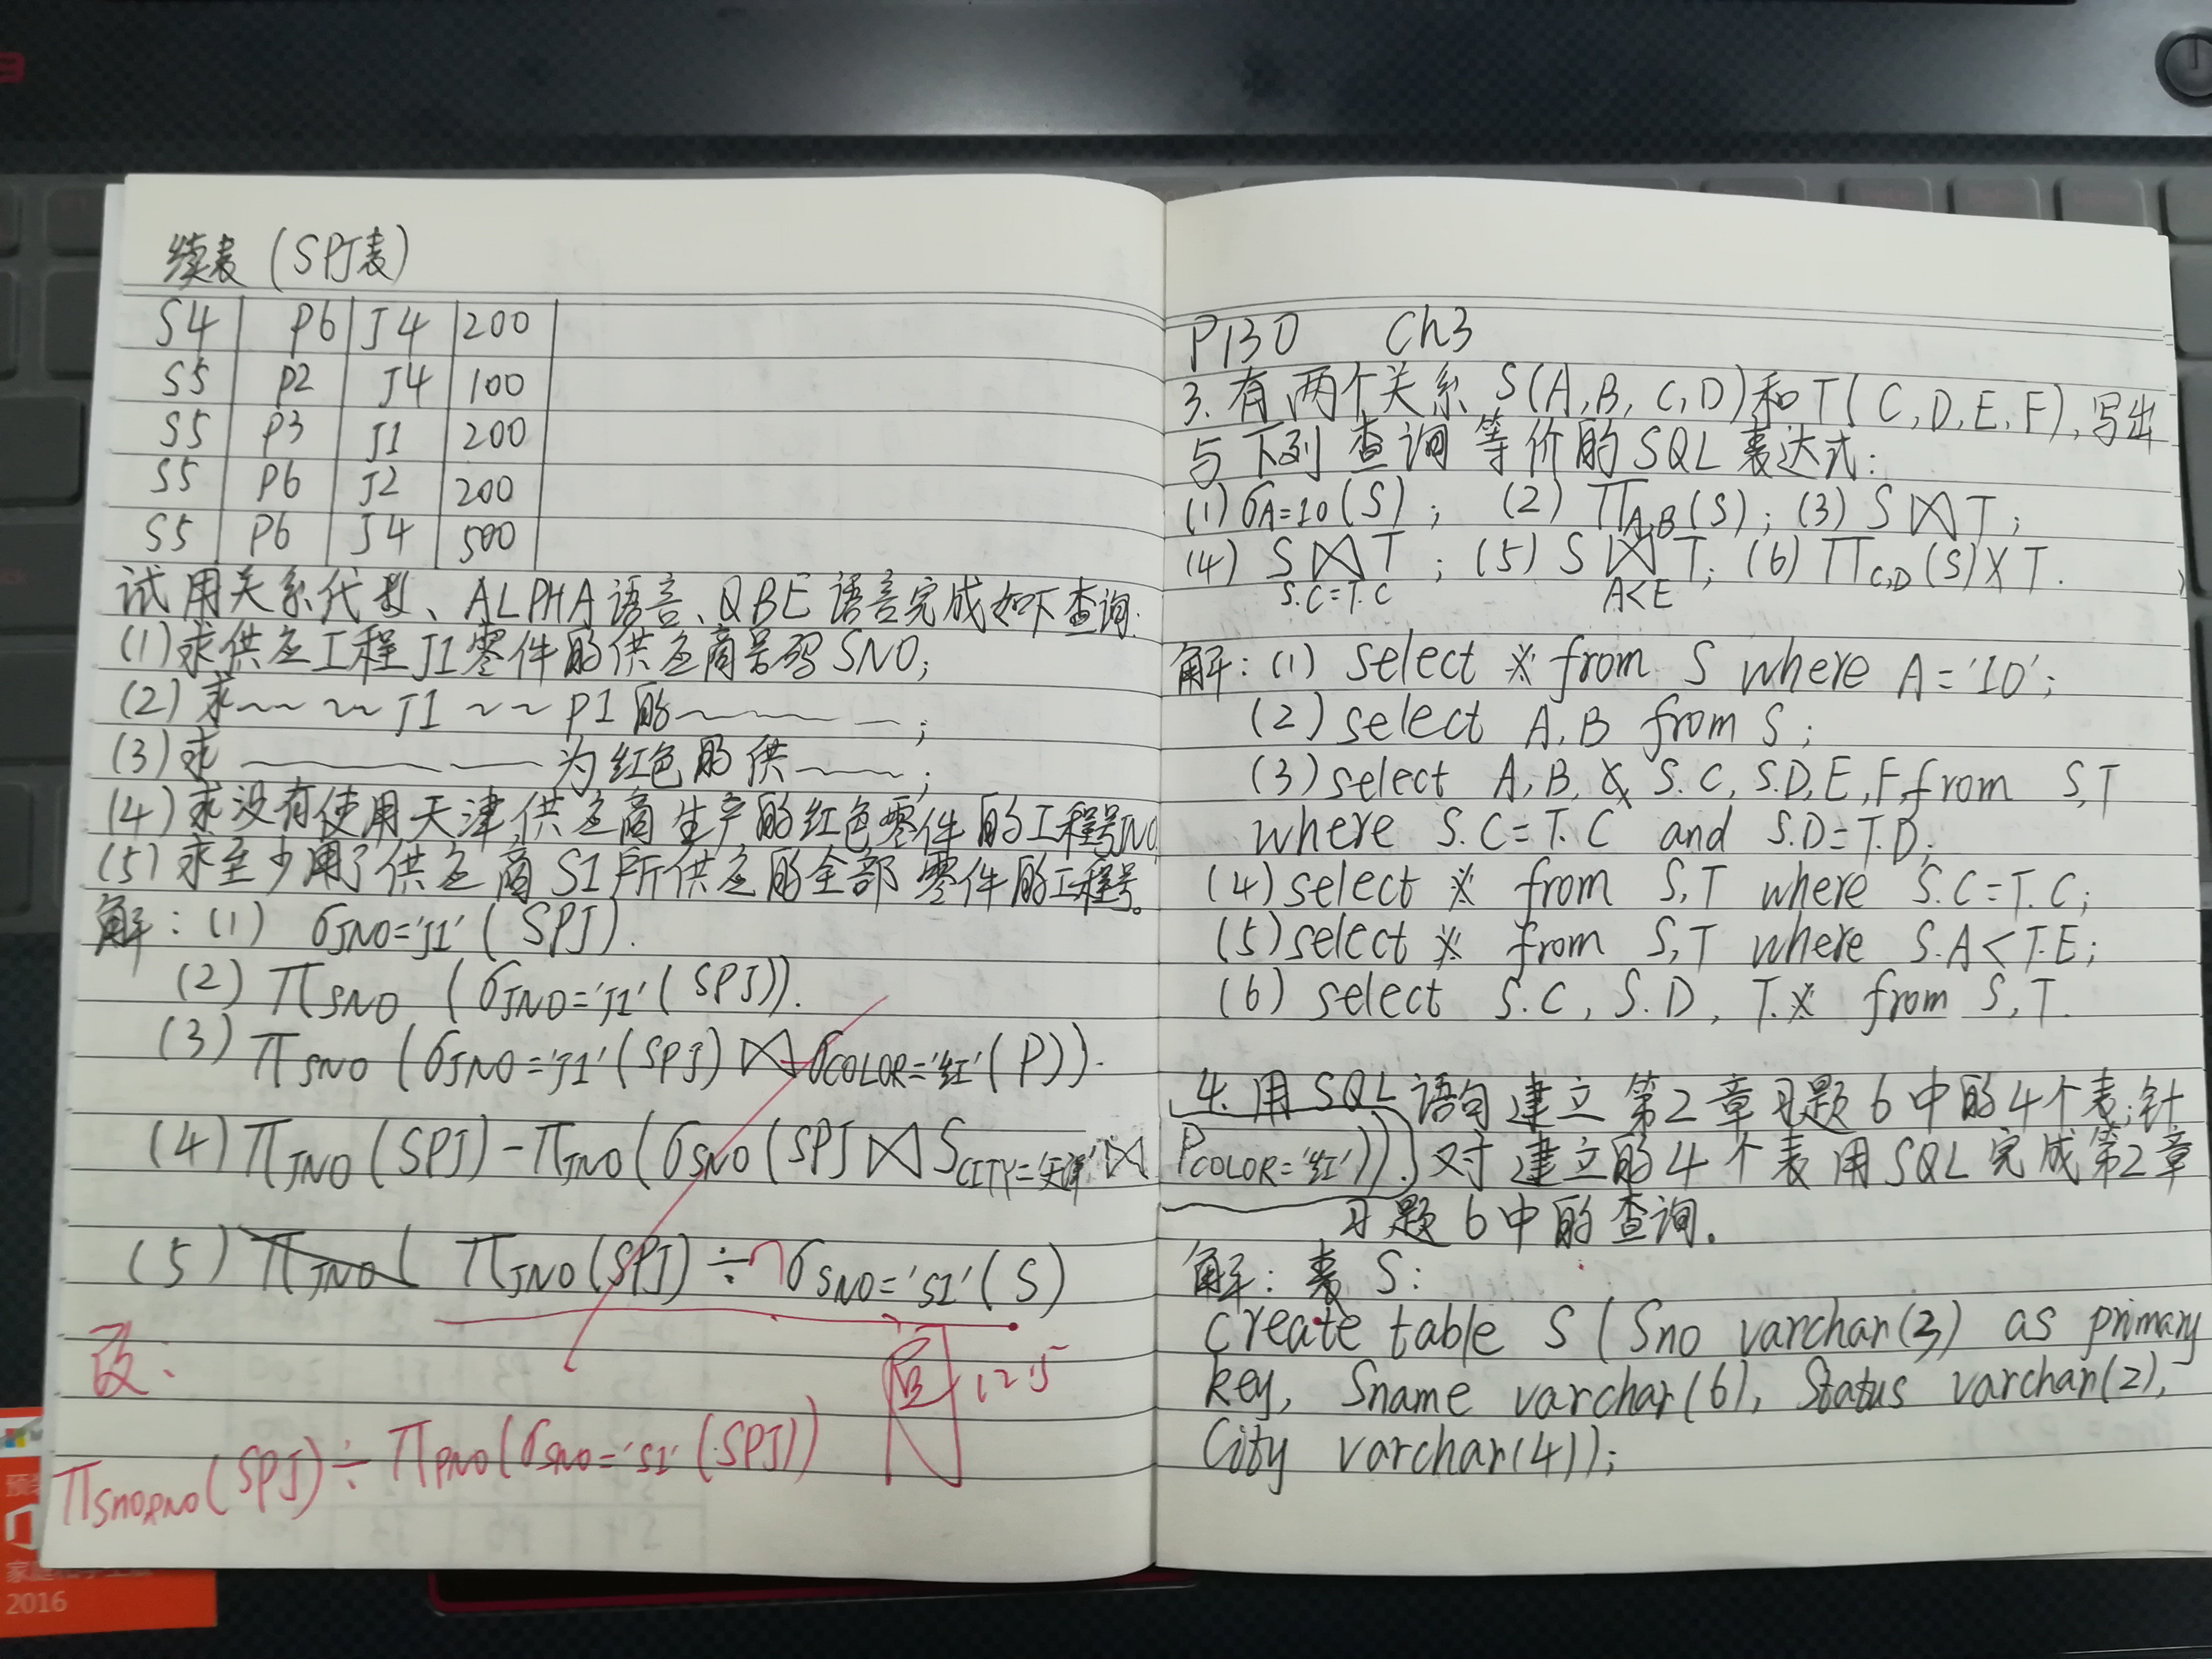 续表(SPJ表)
S4 P6 J4 200
S5 P2 J4 100
S5 P3 J1 200
S5 P6 J2 200
S5 P6 J4 500
试用关系代数、ALPHA语言、QBE语言完成如下查询:
(1)求供应工程J1零件的供应商号码SNO;
(2)求~~ ~~J1 ~~P1的~~~~;
(3)求~~~~为红色的供~~~;
(4)求没有使用天津供应商生产的红色零件的工程号JNO
(5)求至少用了供应商S1所供应的全部零件的工程号。
解:(1) σJNO='J1'(SPJ).
(2) πSNO (σJNO='J1'(SPJ)).
(3) πSNO (σJNO='J1'(SPJ)⋈σCOLOR='红'(P)).
(4) πJNO(SPJ)-πJNO(σSNO(SPJ⋈SCITY='天津'⋈
(5) πJNO( πJNO(SPJ)÷σSNO='S1'(S)
改:
12.5
πSNO,PNO(SPJ)÷πPNO(σSNO='S1'(SPJ))
P130 Ch3
3.有两个关系S(A,B,C,D)和T(C,D,E,F),写出
与下列查询等价的SQL表达式:
(1)σA=10(S); (2)πA,B(S); (3)S⋈T;
(4) S⋈T ; (5) S⋈T; (6)πC,D(S)×T.
S.C=T.C A<E
解:(1) select * from S where A='10';
(2)select A,B from S;
(3)select A,B, S.C, S.D,E,F,from S,T
where S.C=T.C and S.D=T.D;
(4)select * from S,T where S.C=T.C;
(5)select * from S,T where S.A<T.E;
(6) select S.C, S.D, T.* from S,T.
4.用SQL语句建立第2章习题6中的4个表;针
PCOLOR='红')).对建立的4个表用SQL完成第2章
习题6中的查询.
解:表S:
create table S(Sno varchar(3) as primary
key, Sname varchar(6), Status varchar(2),
City varchar(4));
2016